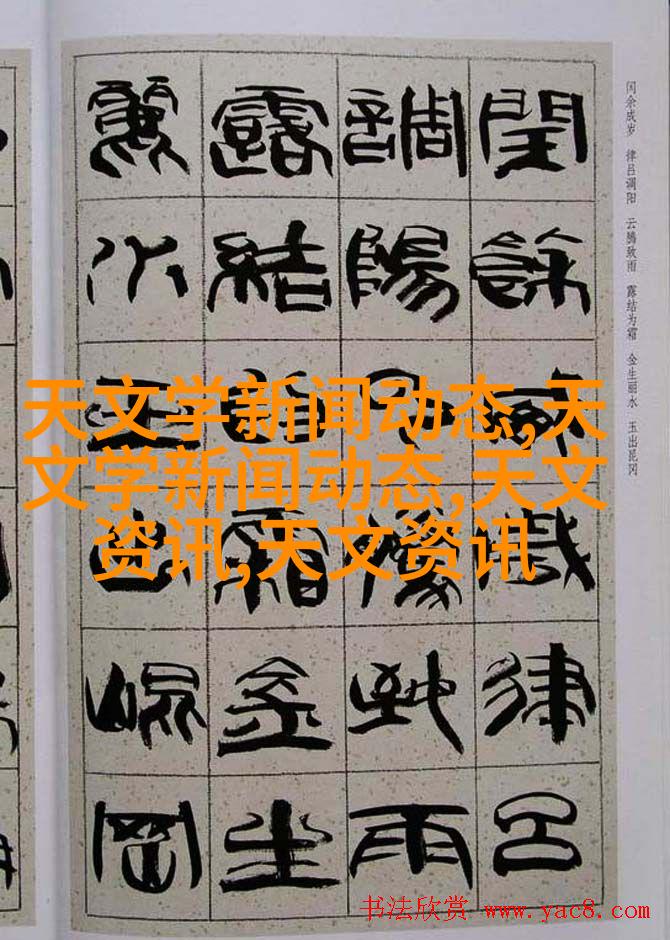 闰余成岁 律吕调阳 云腾致雨 露结为霜 金生丽水 玉出昆冈
閏餘成歲律呂
調陽云騰致雨
露結為霜金生
麗水玉出崐岡
天文学新闻动态,天
文学新闻动态,天文
资讯,天文资讯
书法欣赏 www.yac8.com